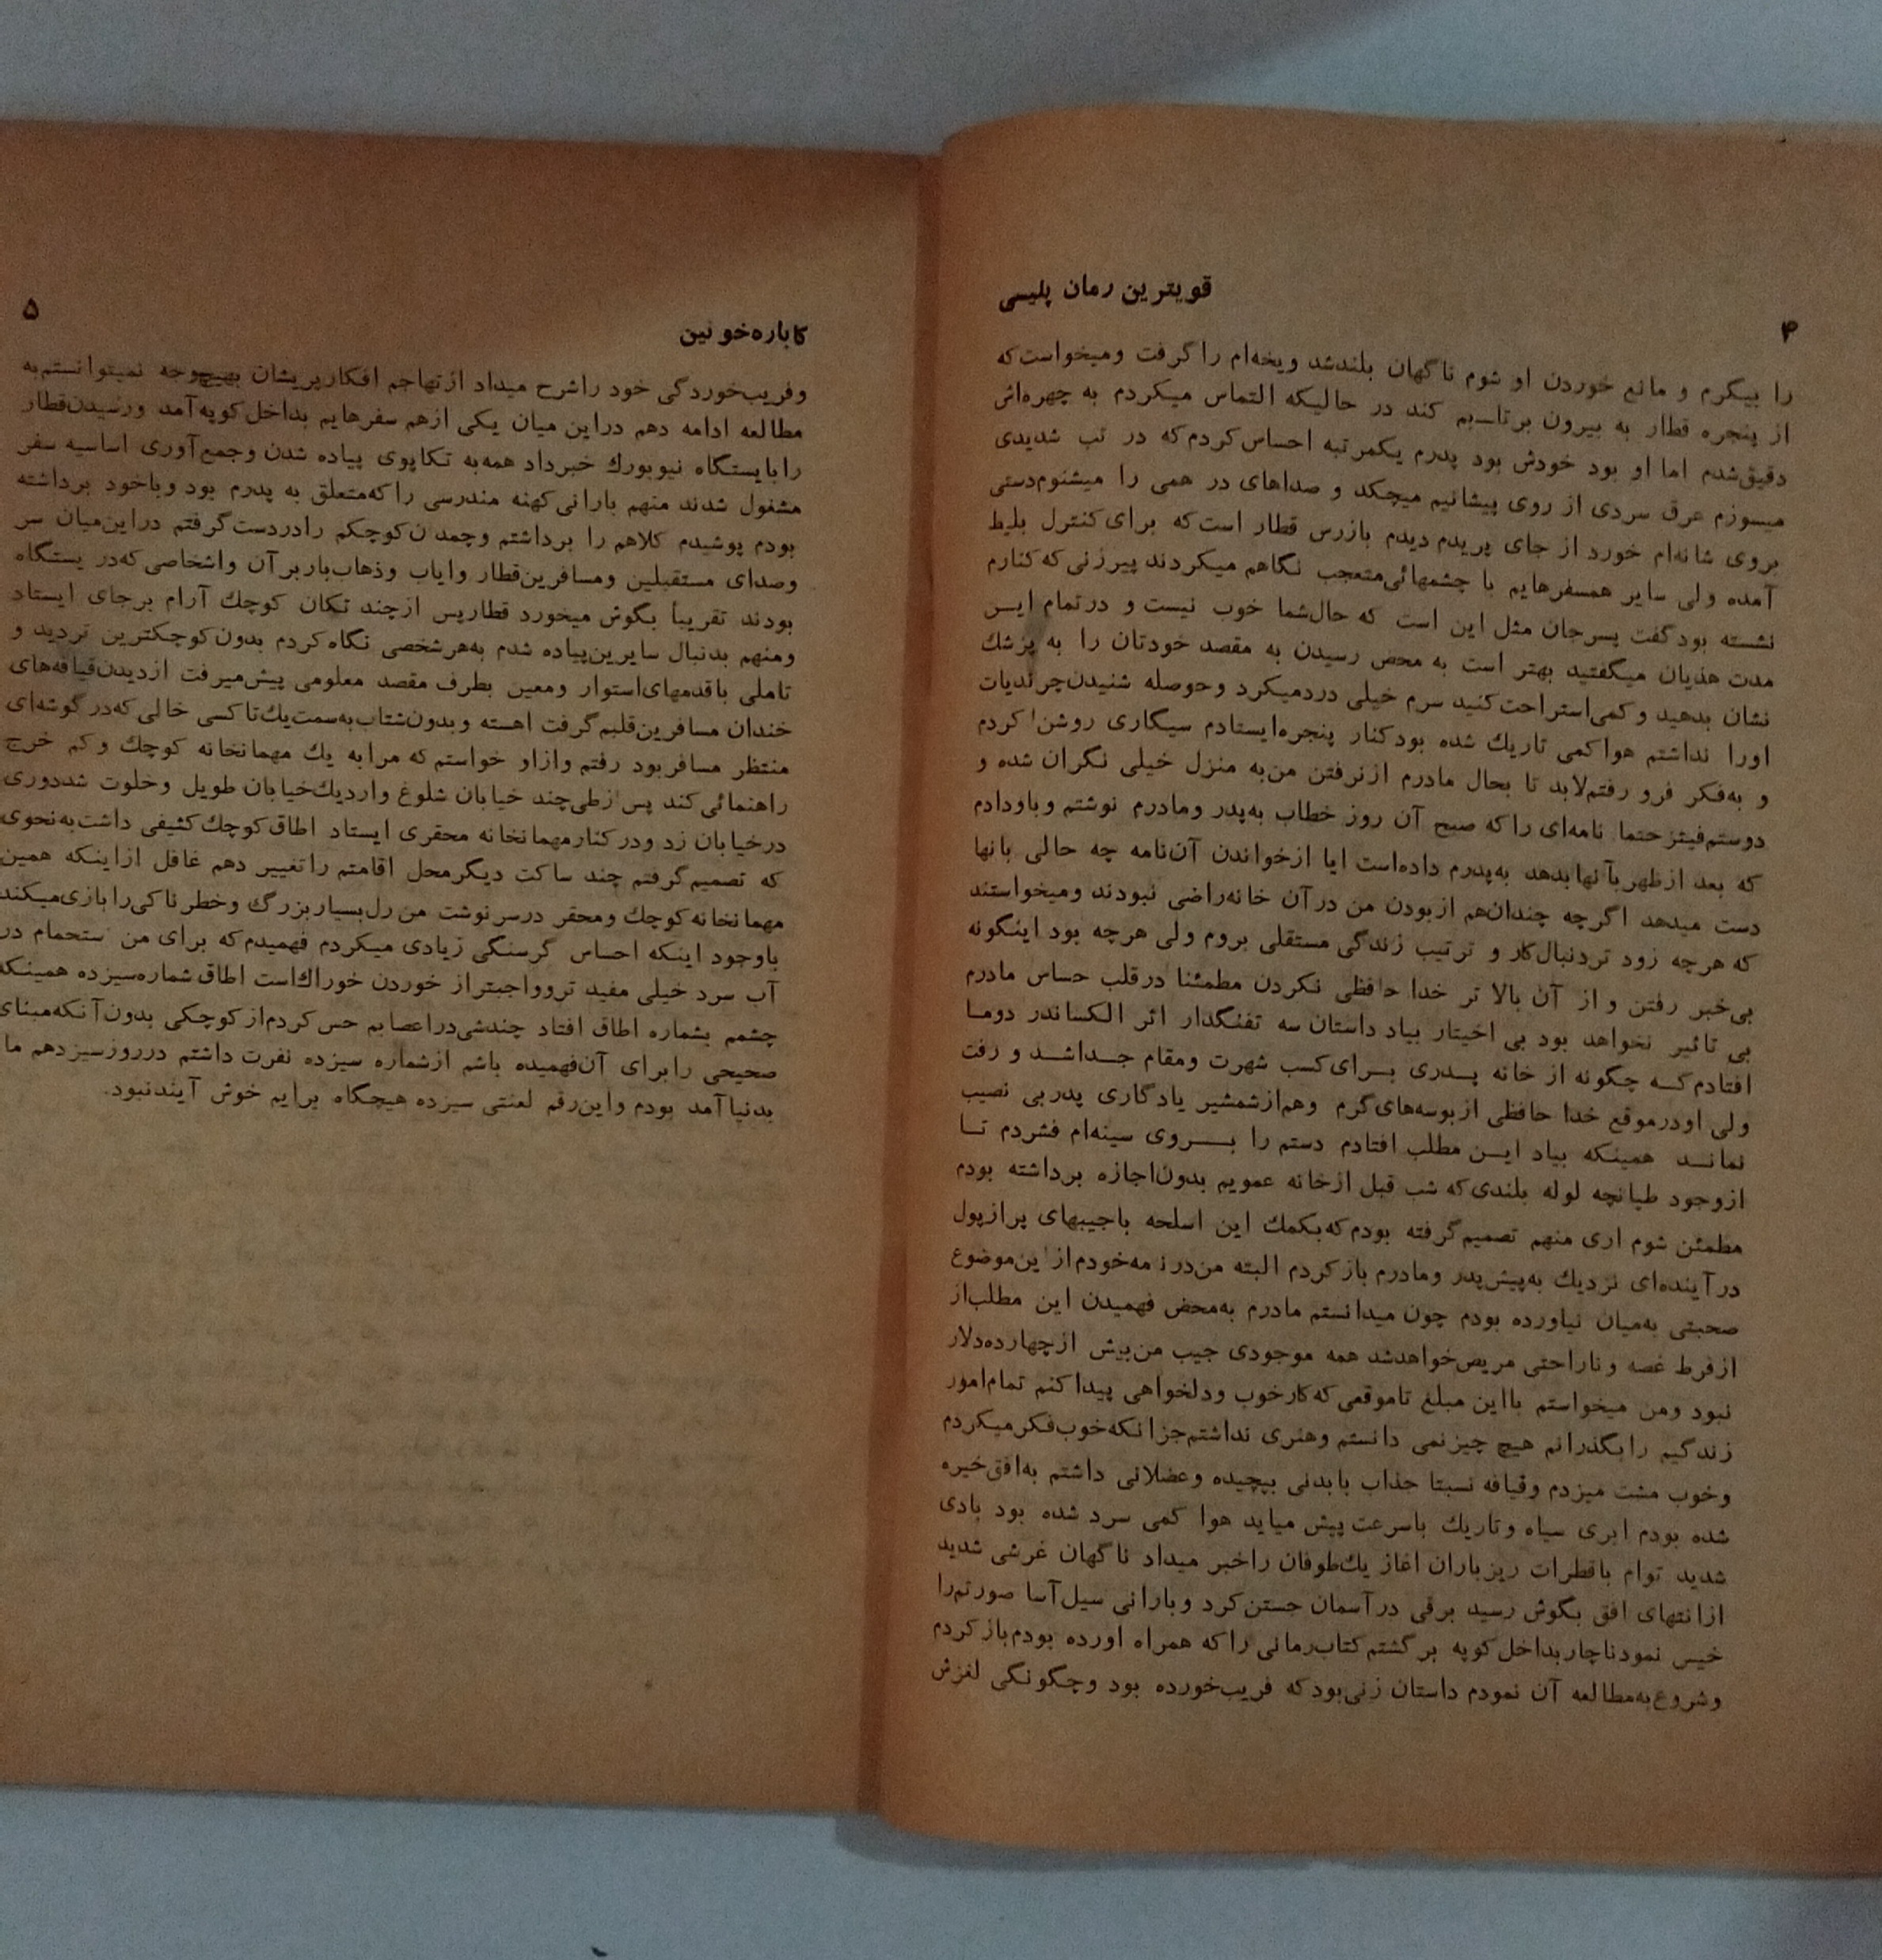 قویترین رمان پلیسی
۴
را بیگرم و مانع خوردن او شوم ناگهان بلندشد ویخه‌ام راگرفت ومیخواست‌که
از پنجره قطار به بیرون برتابم کند در حالیکه التماس میکردم به چهره‌اش
دقیق‌شدم اما او بود خودش بود پدرم یکمرتبه احساس‌کردم‌که در تب شدیدی
میسوزم عرق سردی از روی پیشانیم میچکد و صداهای در همی را میشنوم‌دستی
بروی شانه‌ام خورد از جای پریدم دیدم بازرس قطار است‌که برای‌کنترل بلیط
آمده ولی سایر همسفرهایم با چشمهائی‌متعجب نگاهم میکردند پیرزنی‌که‌کنارم
نشسته بود‌گفت پسرجان مثل این است که حال‌شما خوب نیست و درتمام این
مدت هذیان میگفتید بهتر است به محض رسیدن به مقصد خودتان را به پزشك
نشان بدهید وکمی‌استراحت‌کنید سرم خیلی دردمیکرد وحوصله شنیدن‌چرندیات
اورا نداشتم هواکمی تاریك شده بودکنار پنجره‌ایستادم سیگاری روشن‌کردم
و به‌فکر فرو رفتم‌لابد تا بحال مادرم ازنرفتن من‌به منزل خیلی نگران شده و
دوستم‌فیتزحتما نامه‌ای راکه صبح آن روز خطاب به‌پدر ومادرم نوشتم وباودادم
که بعد ازظهربآنهابدهد به‌پدرم داده‌است ایا ازخواندن آن‌نامه چه حالی بانها
دست میدهد اگرچه چندان‌هم ازبودن من درآن خانه‌راضی نبودند ومیخواستند
که هرچه زود تردنبال‌کار و ترتیب زندگی مستقلی بروم ولی هرچه بود اینگونه
بی‌خبر رفتن و از آن بالا تر خدا حافظی نکردن مطمئنا درقلب حساس مادرم
بی تاثیر نخواهد بود بی اختیار بیاد داستان سه تفنگدار اثر الکساندر دوما
افتادم‌که چگونه از خانه پدری برای‌کسب شهرت ومقام جداشد و رفت
ولی اودرموقع خدا حافظی ازبوسه‌های‌گرم وهم‌ازشمشیر یادگاری پدربی نصیب
نماند همینکه بیاد این مطلب افتادم دستم را بروی سینه‌ام فشردم تا
ازوجود طپانچه لوله بلندی‌که شب قبل ازخانه عمویم بدون‌اجازه برداشته بودم
مطمئن شوم اری منهم تصمیم‌گرفته بودم‌که‌بکمك این اسلحه باجیبهای پرازپول
درآینده‌ای نزدیك به‌پیش‌پدر ومادرم بازکردم البته من‌در مه‌خودم‌از ین‌موضوع
صحبتی به‌میان نیاورده بودم چون میدانستم مادرم به‌محض فهمیدن این مطلب‌از
ازفرط غصه وناراحتی مریض‌خواهدشد همه موجودی جیب من‌بیش ازچهارده‌دلار
نبود ومن میخواستم بااین مبلغ تاموقعی‌که‌کارخوب ودلخواهی پیداکنم تمام‌امور
زندگیم رابگذرانم هیچ چیزنمی دانستم وهنری نداشتم‌جزانکه‌خوب‌فکرمیکردم
وخوب مشت میزدم وقیافه نسبتا جذاب بابدنی بپچیده وعضلانی داشتم به‌افق‌خیره
شده بودم ابری سیاه وتاریك باسرعت پیش میاید هوا کمی سرد شده بود بادی
شدید توام باقطرات ریزباران اغاز یك‌طوفان راخبر میداد ناگهان غرشی شدید
ازانتهای افق بگوش رسید برقی درآسمان جستن‌کرد وبارانی سیل‌آسا صورتم‌را
خیس نمودناچاربداخل‌کوپه برگشتم‌کتاب‌رمانی راکه همراه اورده بودم‌بازکردم
وشروع‌به‌مطالعه آن نمودم داستان زنی‌بودکه فریب‌خورده بود وچگونگی لغزش
کاباره‌خونین
۵
وفریب‌خوردگی خود راشرح میداد ازتهاجم افکارپریشان بهیچوجه نمیتوانستم‌به
مطالعه ادامه دهم دراین میان یکی ازهم سفرهایم بداخل‌کوپه‌آمد ورسیدن‌قطار
رابایستگاه نیویورك خبرداد همه‌به تکاپوی پیاده شدن وجمع‌آوری اساسیه سفر
مشغول شدند منهم بارانی‌کهنه مندرسی راکه‌متعلق به پدرم بود وباخود برداشته
بودم پوشیدم کلاهم را برداشتم وچمدان‌کوچکم رادردست‌گرفتم دراین‌میان سر
وصدای مستقبلین ومسافرین‌قطار وایاب وذهاب‌باربرآن واشخاصی‌که‌در یستگاه
بودند تقریباً بگوش میخورد قطارپس ازچند تکان کوچك آرام برجای ایستاد
ومنهم بدنبال سایرین‌پیاده شدم به‌هرشخصی نگاه‌کردم بدون‌کوچکترین تردید و
تاملی باقدمهای‌استوار ومعین بطرف مقصد معلومی پیش‌میرفت ازدیدن‌قیافه‌های
خندان مسافرین‌قلبم‌گرفت اهسته وبدون‌شتاب‌به‌سمت‌یك‌تاکسی خالی‌که‌درگوشه‌ای
منتظر مسافربود رفتم وازاو خواستم‌که مرابه یك مهمانخانه کوچك وکم خرج
راهنمائی‌کند پس ازطی‌چند خیابان شلوغ واردیك‌خیابان طویل وخلوت شددوری
درخیابان زد ودرکنارمهمانخانه محقری ایستاد اطاق‌کوچك‌کثیفی داشت‌به‌نحوی
که تصمیم‌گرفتم چند ساکت دیگرمحل اقامتم راتغییر دهم غافل ازاینکه همین
مهمانخانه‌کوچك ومحقر درسرنوشت من رل‌بسیاربزرگ وخطرناکی‌رابازی‌میکند
باوجود اینکه احساس گرسنگی زیادی میکردم فهمیدم‌که برای من ستحمام در
آب سرد خیلی مفید ترو‌واجبتراز خوردن خوراك‌است اطاق شماره‌سیزده همینکه
چشمم بشماره اطاق افتاد چندشی‌دراعصابم حس‌کردم‌ازکوچکی بدون‌آنکه‌مبنای
صحیحی رابرای آن‌فهمیده باشم ازشماره سیزده نفرت داشتم درروزسیزدهم ما
بدنیاآمد بودم واین‌رقم لعنتی سیزده هیچگاه برایم خوش آیندنبود.